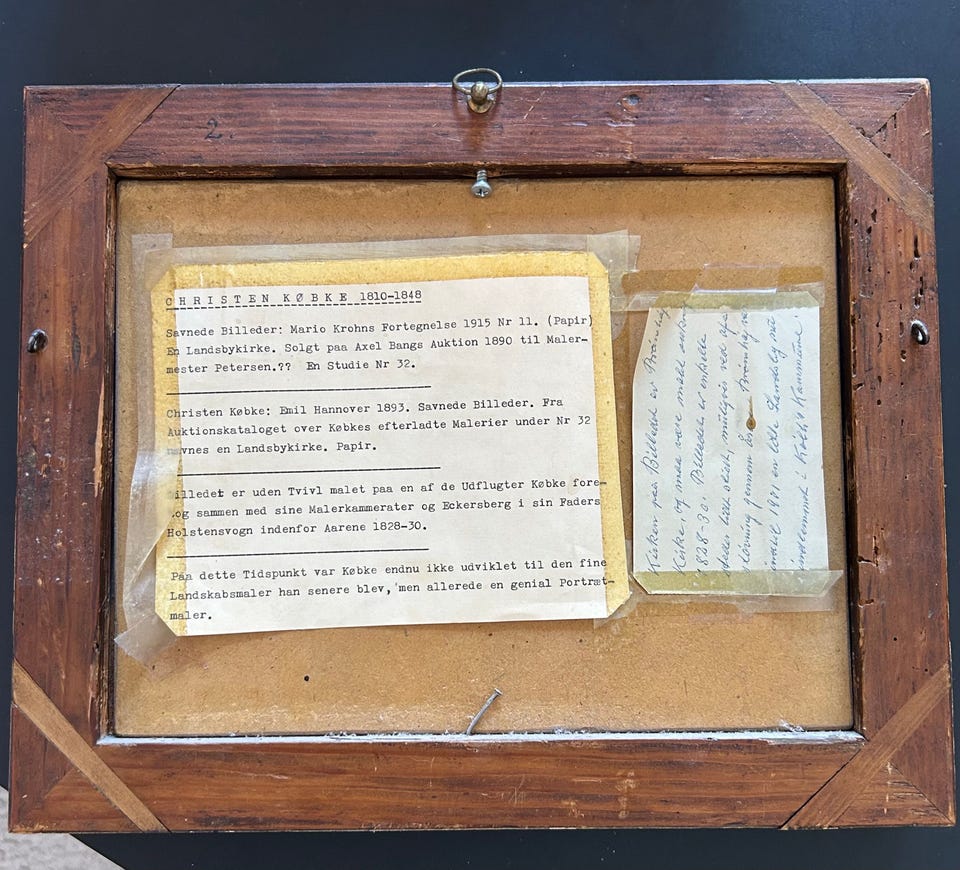 2.
CHRISTEN KØBKE 1810-1848
Savnede Billeder: Mario Krohns Fortegnelse 1915 Nr 11. (Papir)
En Landsbykirke. Solgt paa Axel Bangs Auktion 1890 til Maler-
mester Petersen.?? En Studie Nr 32.
Christen Købke: Emil Hannover 1893. Savnede Billeder. Fra
Auktionskataloget over Købkes efterladte Malerier under Nr 32
nævnes en Landsbykirke. Papir.
Billedet er uden Tvivl malet paa en af de Udflugter Købke fore-
tog sammen med sine Malerkammerater og Eckersberg i sin Faders
Holstensvogn indenfor Aarene 1828-30.
Paa dette Tidspunkt var Købke endnu ikke udviklet til den fine
Landskabsmaler han senere blev, men allerede en genial Portræt-
maler.
Kirken paa Billedet er
Kirke, og maa være malet
1828-30. Billedet er enkelte
Steder lidt skadet, muligvis ved
gennem
en lille Landsby nu
indlemmet i Kommune.